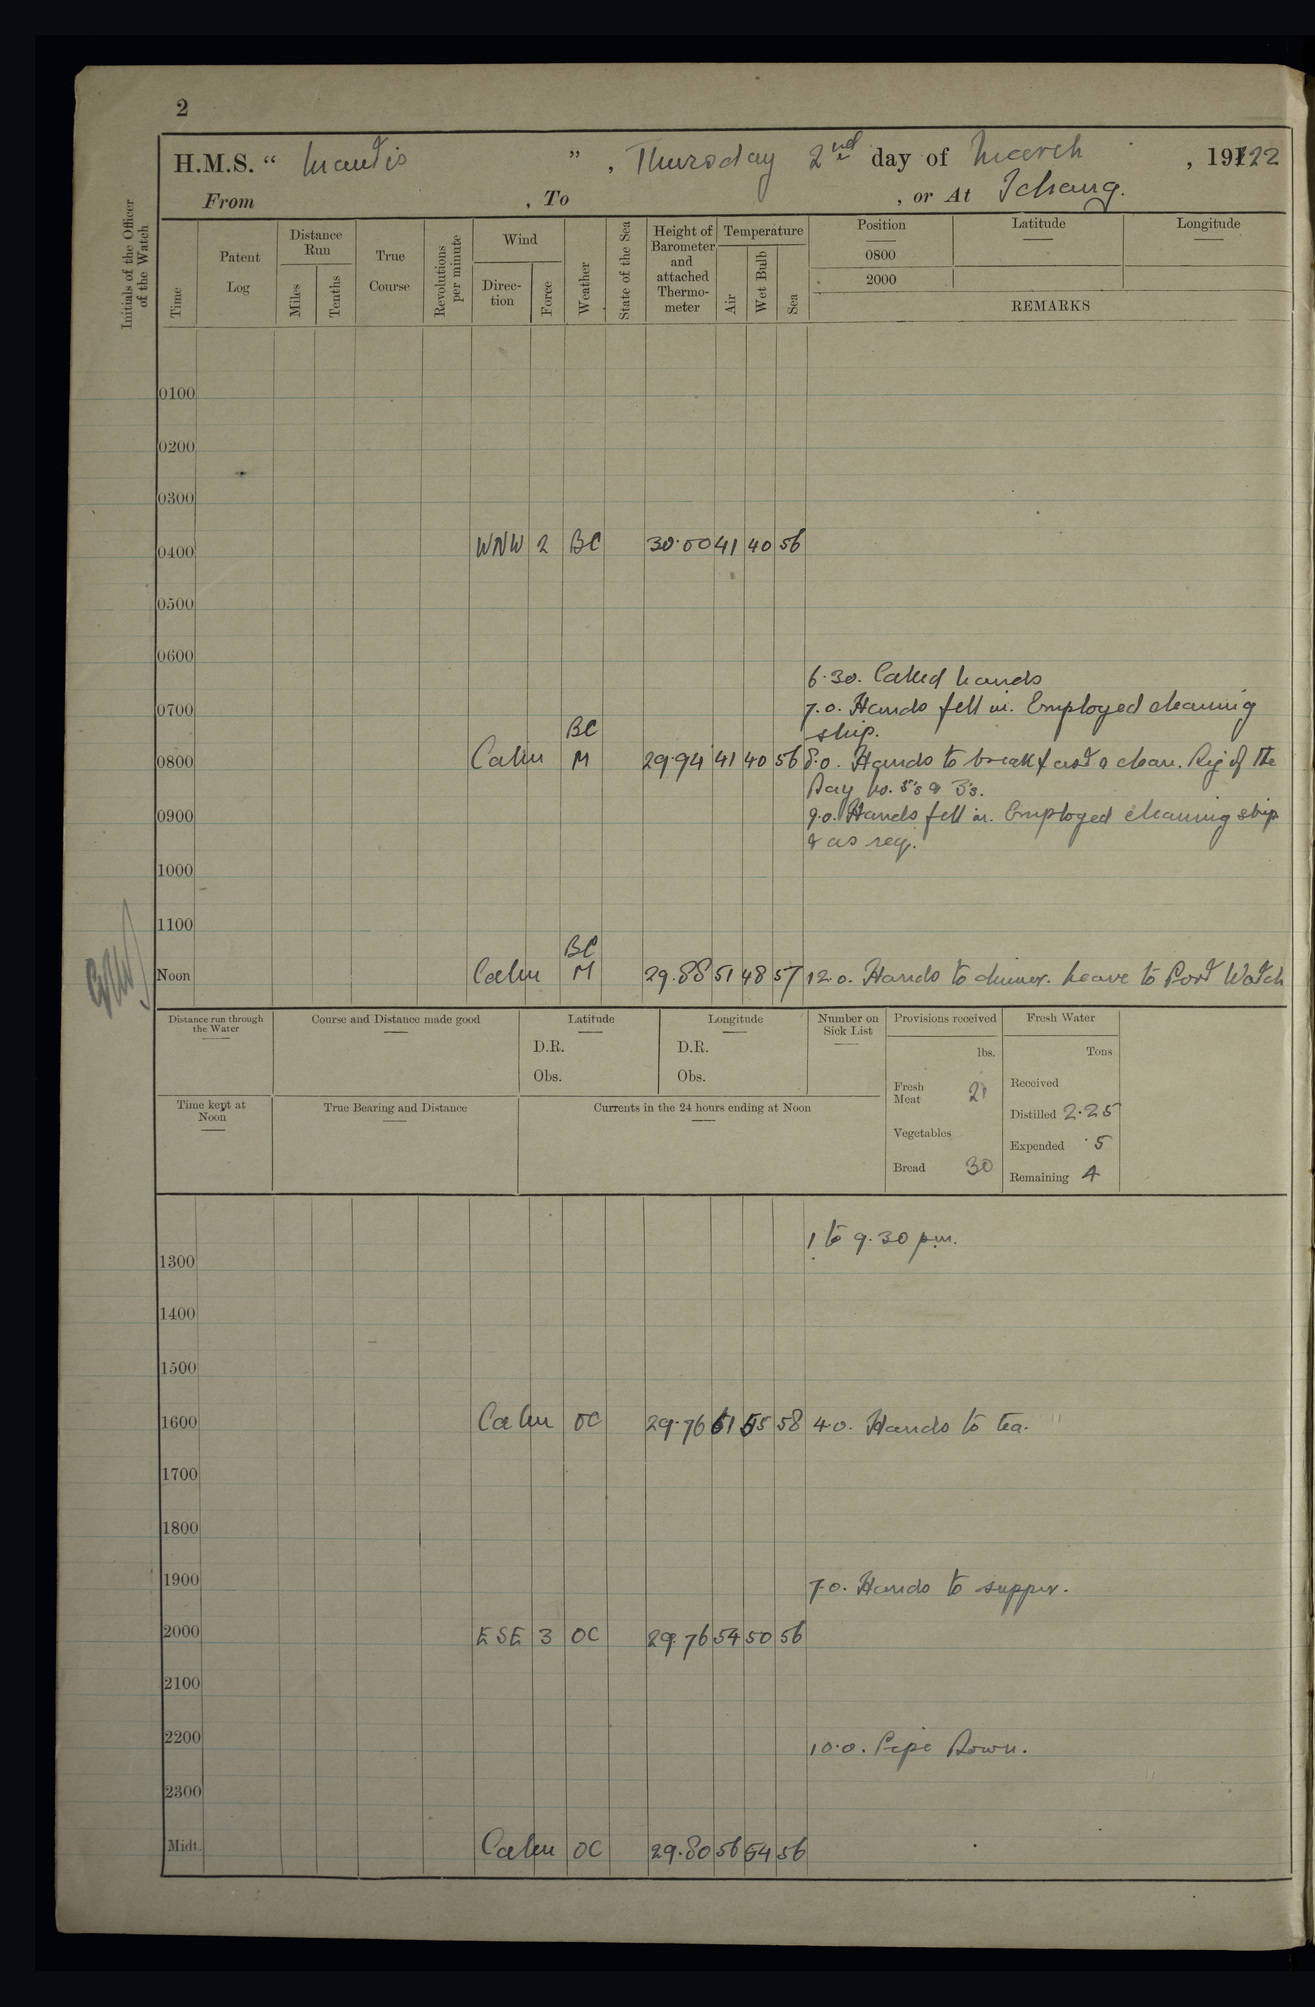 2
H.M.S. “ Mantis ”, Thursday 2nd day of March, 1922
From , To , or At Ichang.
Initials of the Officer of the Watch
Time
Patent Log
Distance Run
Miles
Tenths
True Course
Revolutions per minute
Wind
Direction
Force
Weather
State of the Sea
Height of Barometer and attached Thermometer
Temperature
Air
Wet Bulb
Sea
Position
0800
2000
Latitude
Longitude
REMARKS
0100
0200
0300
0400 WNW 2 BC 30.00 41 40 56
0500
0600
6.30. Called hands
0700 7.0. Hands fell in. Employed cleaning
ship.
BC
0800 Calm M 29.94 41 40 56 8.0. Hands to breakfast & clean. Rig of the
Day No. 5's & 3's.
0900 9.0. Hands fell in. Employed cleaning ship
& as req.
1000
1100
BC
Noon Calm M 29.88 51 48 57 12.0. Hands to dinner. Leave to Port Watch
Distance run through the Water
Course and Distance made good
Latitude
D.R.
Obs.
Longitude
D.R.
Obs.
Number on Sick List
Provisions received
lbs.
Fresh Meat 21
Vegetables
Bread 30
Fresh Water
Tons
Received
Distilled 2.25
Expended .5
Remaining 4
Time kept at Noon
True Bearing and Distance
Currents in the 24 hours ending at Noon
1 to 9.30 pm.
1300
1400
1500
1600 Calm OC 29.76 61 55 58 4.0. Hands to tea.
1700
1800
1900 7.0. Hands to supper.
2000 ESE 3 OC 29.76 54 50 56
2100
2200 10.0. Pipe Down.
2300
Midt. Calm OC 29.80 56 54 56